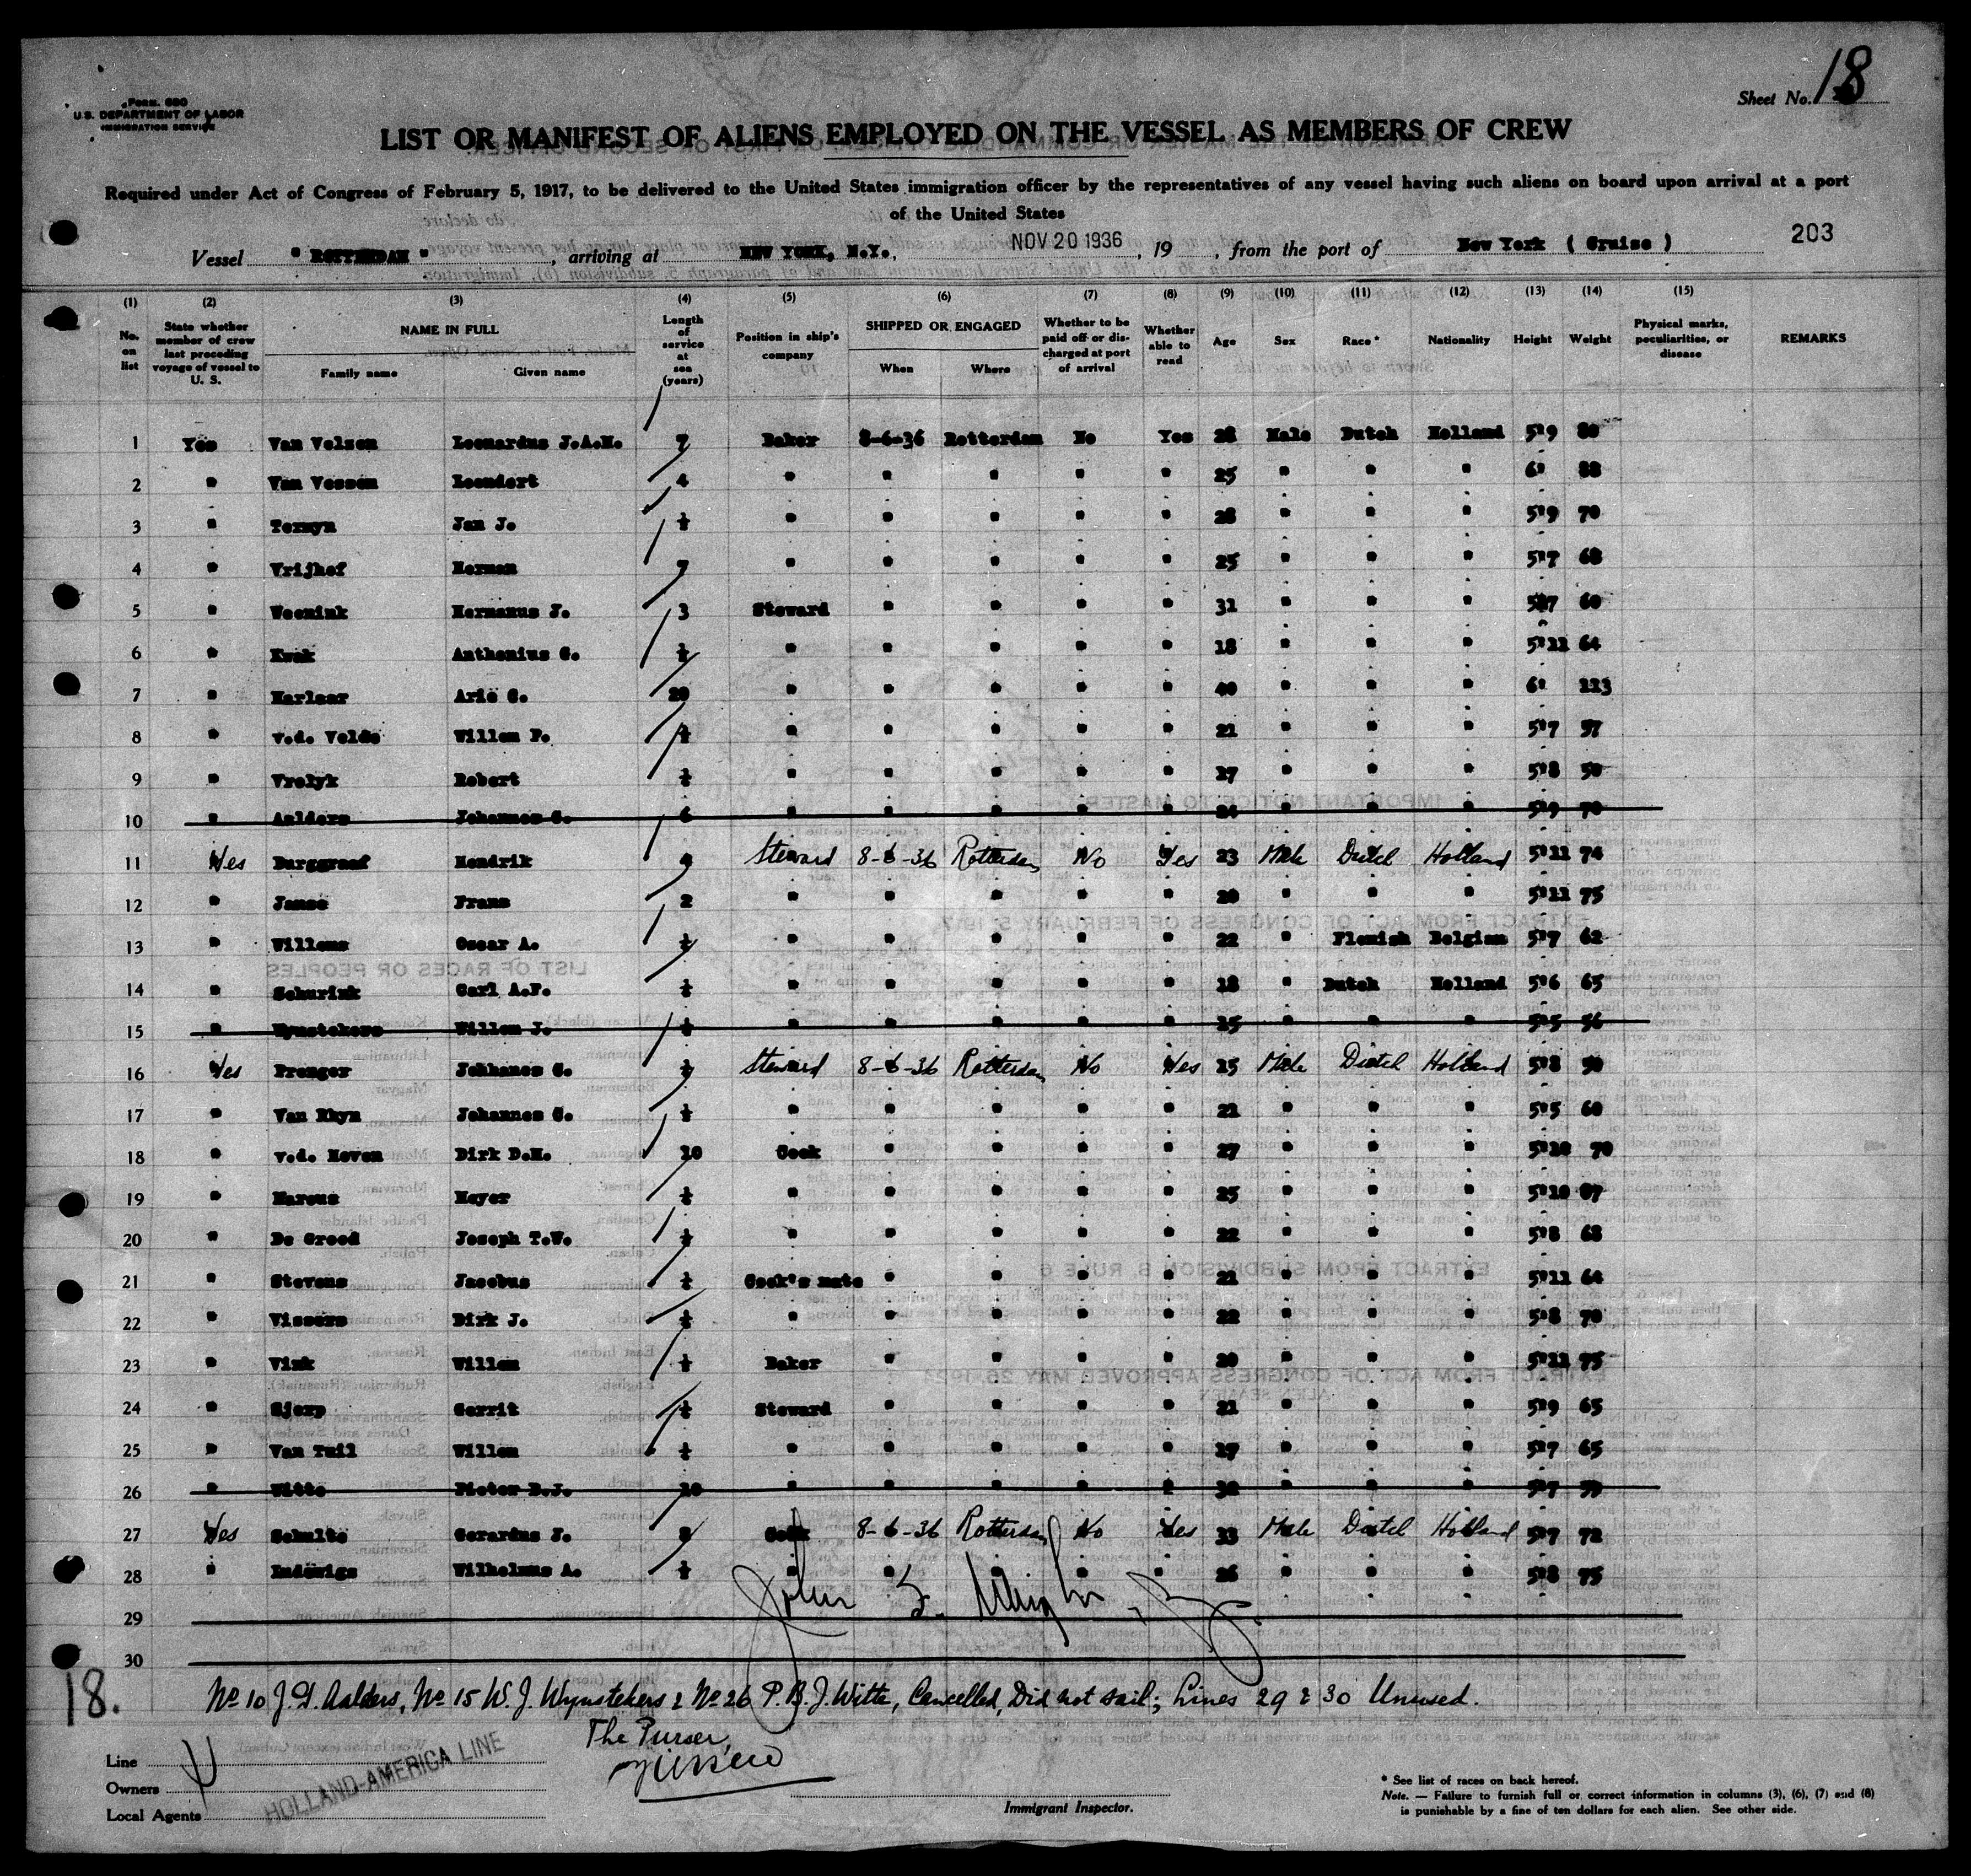 Form. 680
U.S. DEPARTMENT OF LABOR
IMMIGRATION SERVICE
Sheet No. 18
LIST OR MANIFEST OF ALIENS EMPLOYED ON THE VESSEL AS MEMBERS OF CREW
Required under Act of Congress of February 5, 1917, to be delivered to the United States immigration officer by the representatives of any vessel having such aliens on board upon arrival at a port
of the United States
Vessel " ROTTERDAM ", arriving at NEW YORK, N.Y., NOV 20 1936, 19 , from the port of New York ( Cruise ) 203
(1) (2) (3) (4) (5) (6) (7) (8) (9) (10) (11) (12) (13) (14) (15)
No. on list State whether member of crew last preceding voyage of vessel to U. S. NAME IN FULL Family name Given name Length of service at sea (years) Position in ship's company SHIPPED OR ENGAGED When Where Whether to be paid off or discharged at port of arrival Whether able to read Age Sex Race * Nationality Height Weight Physical marks, peculiarities, or disease REMARKS
1 Yes Van Velzen Leonardus J.A.M. 7 Baker 8-6-36 Rotterdam No Yes 28 Male Dutch Holland 5'9 80
2 " Van Vossen Leendert 4 " " " " " 25 " " " 6' 88
3 " Termyn Jan J. ½ " " " " " 28 " " " 5'9 70
4 " Vrijhof Herman 7 " " " " " 25 " " " 5'7 68
5 " Weenink Hermanus J. 3 Steward " " " " 31 " " " 5'7 60
6 " Kwak Anthonius C. ½ " " " " " 18 " " " 5'11 64
7 " Harlaar Arie C. 20 " " " " " 40 " " " 6' 113
8 " v.d. Velde Willem P. ½ " " " " " 21 " " " 5'7 57
9 " Vrolyk Robert ½ " " " " " 17 " " " 5'8 50
10 " Aalders Johannes G. 6 " " " " " 24 " " " 5'9 70
11 Yes Burggraaf Hendrik 9 Steward 8-6-36 Rotterdam No Yes 23 Male Dutch Holland 5'11 74
12 " Janse Frans 2 " " " " " 20 " " " 5'11 75
13 " Willems Oscar A. ½ " " " " " 22 " Flemish Belgian 5'7 62
14 " Schurink Carl A.F. ½ " " " " " 18 " Dutch Holland 5'6 65
15 " Wynstekers Willem J. ½ " " " " " 15 " " " 5'5 56
16 Yes Prenger Johhanes C. ½ Steward 8-6-36 Rotterdam No Yes 15 Male Dutch Holland 5'8 50
17 " Van Rhyn Johannes C. ½ " " " " " 21 " " " 5'5 60
18 " v.d. Hoven Dirk D.H. 10 Cook " " " " 27 " " " 5'10 70
19 " Marcus Meyer ½ " " " " " 25 " " " 5'10 87
20 " De Greed Joseph T.W. ½ " " " " " 22 " " " 5'8 68
21 " Stevens Jacobus ½ Cook's mate " " " " 21 " " " 5'11 64
22 " Vissers Dirk J. ½ " " " " " 22 " " " 5'8 70
23 " Vink Willem ½ Baker " " " " 20 " " " 5'11 75
24 " Sjerp Gerrit ½ Steward " " " " 21 " " " 5'9 65
25 " Van Tuil Willem ½ " " " " " 17 " " " 5'7 65
26 " Witte Pieter B.J. 10 " " " " " 32 " " " 5'7
27 Yes Schulte Gerardus J. 8 Cook 8-6-36 Rotterdam No Yes 33 Male Dutch Holland 5'7 72
28 " Ludewigs Wilhelmus A. ½ " " " " " 26 " " " 5'8 75
29
30
18. No 10 J.G. Aalders, No 15 W.J. Wynstekers & No 26 P.B.J. Witte, Cancelled, Did not sail; Lines 29 & 30 Unused.
The Purser,
Line
Owners
HOLLAND-AMERICA LINE
Local Agents
Immigrant Inspector.
* See list of races on back hereof.
Note. — Failure to furnish full or correct information in columns (3), (6), (7) and (8)
is punishable by a fine of ten dollars for each alien. See other side.